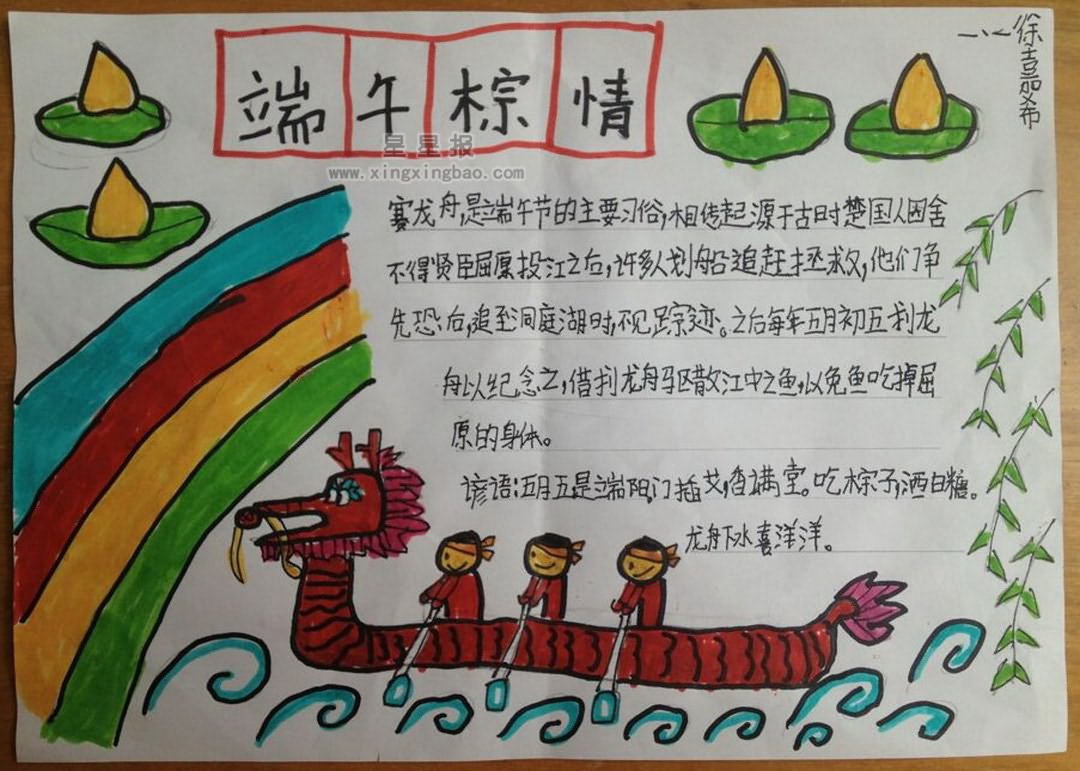 端午棕情
一、心徐嘉希
星星报
www.xingxingbao.com
赛龙舟,是端午节的主要习俗,相传起源于古时楚国人因舍
不得贤臣屈原投江之后,许多人划船追赶拯救,他们争
先恐后,追至洞庭湖时,不见踪迹。之后每年五月初五划龙
舟以纪念之,借划龙舟驱散江中之鱼,以免鱼吃掉屈
原的身体。
谚语:五月五,是端阳,门插艾,香满堂。吃棕子,洒白糖。
龙舟下水喜洋洋。